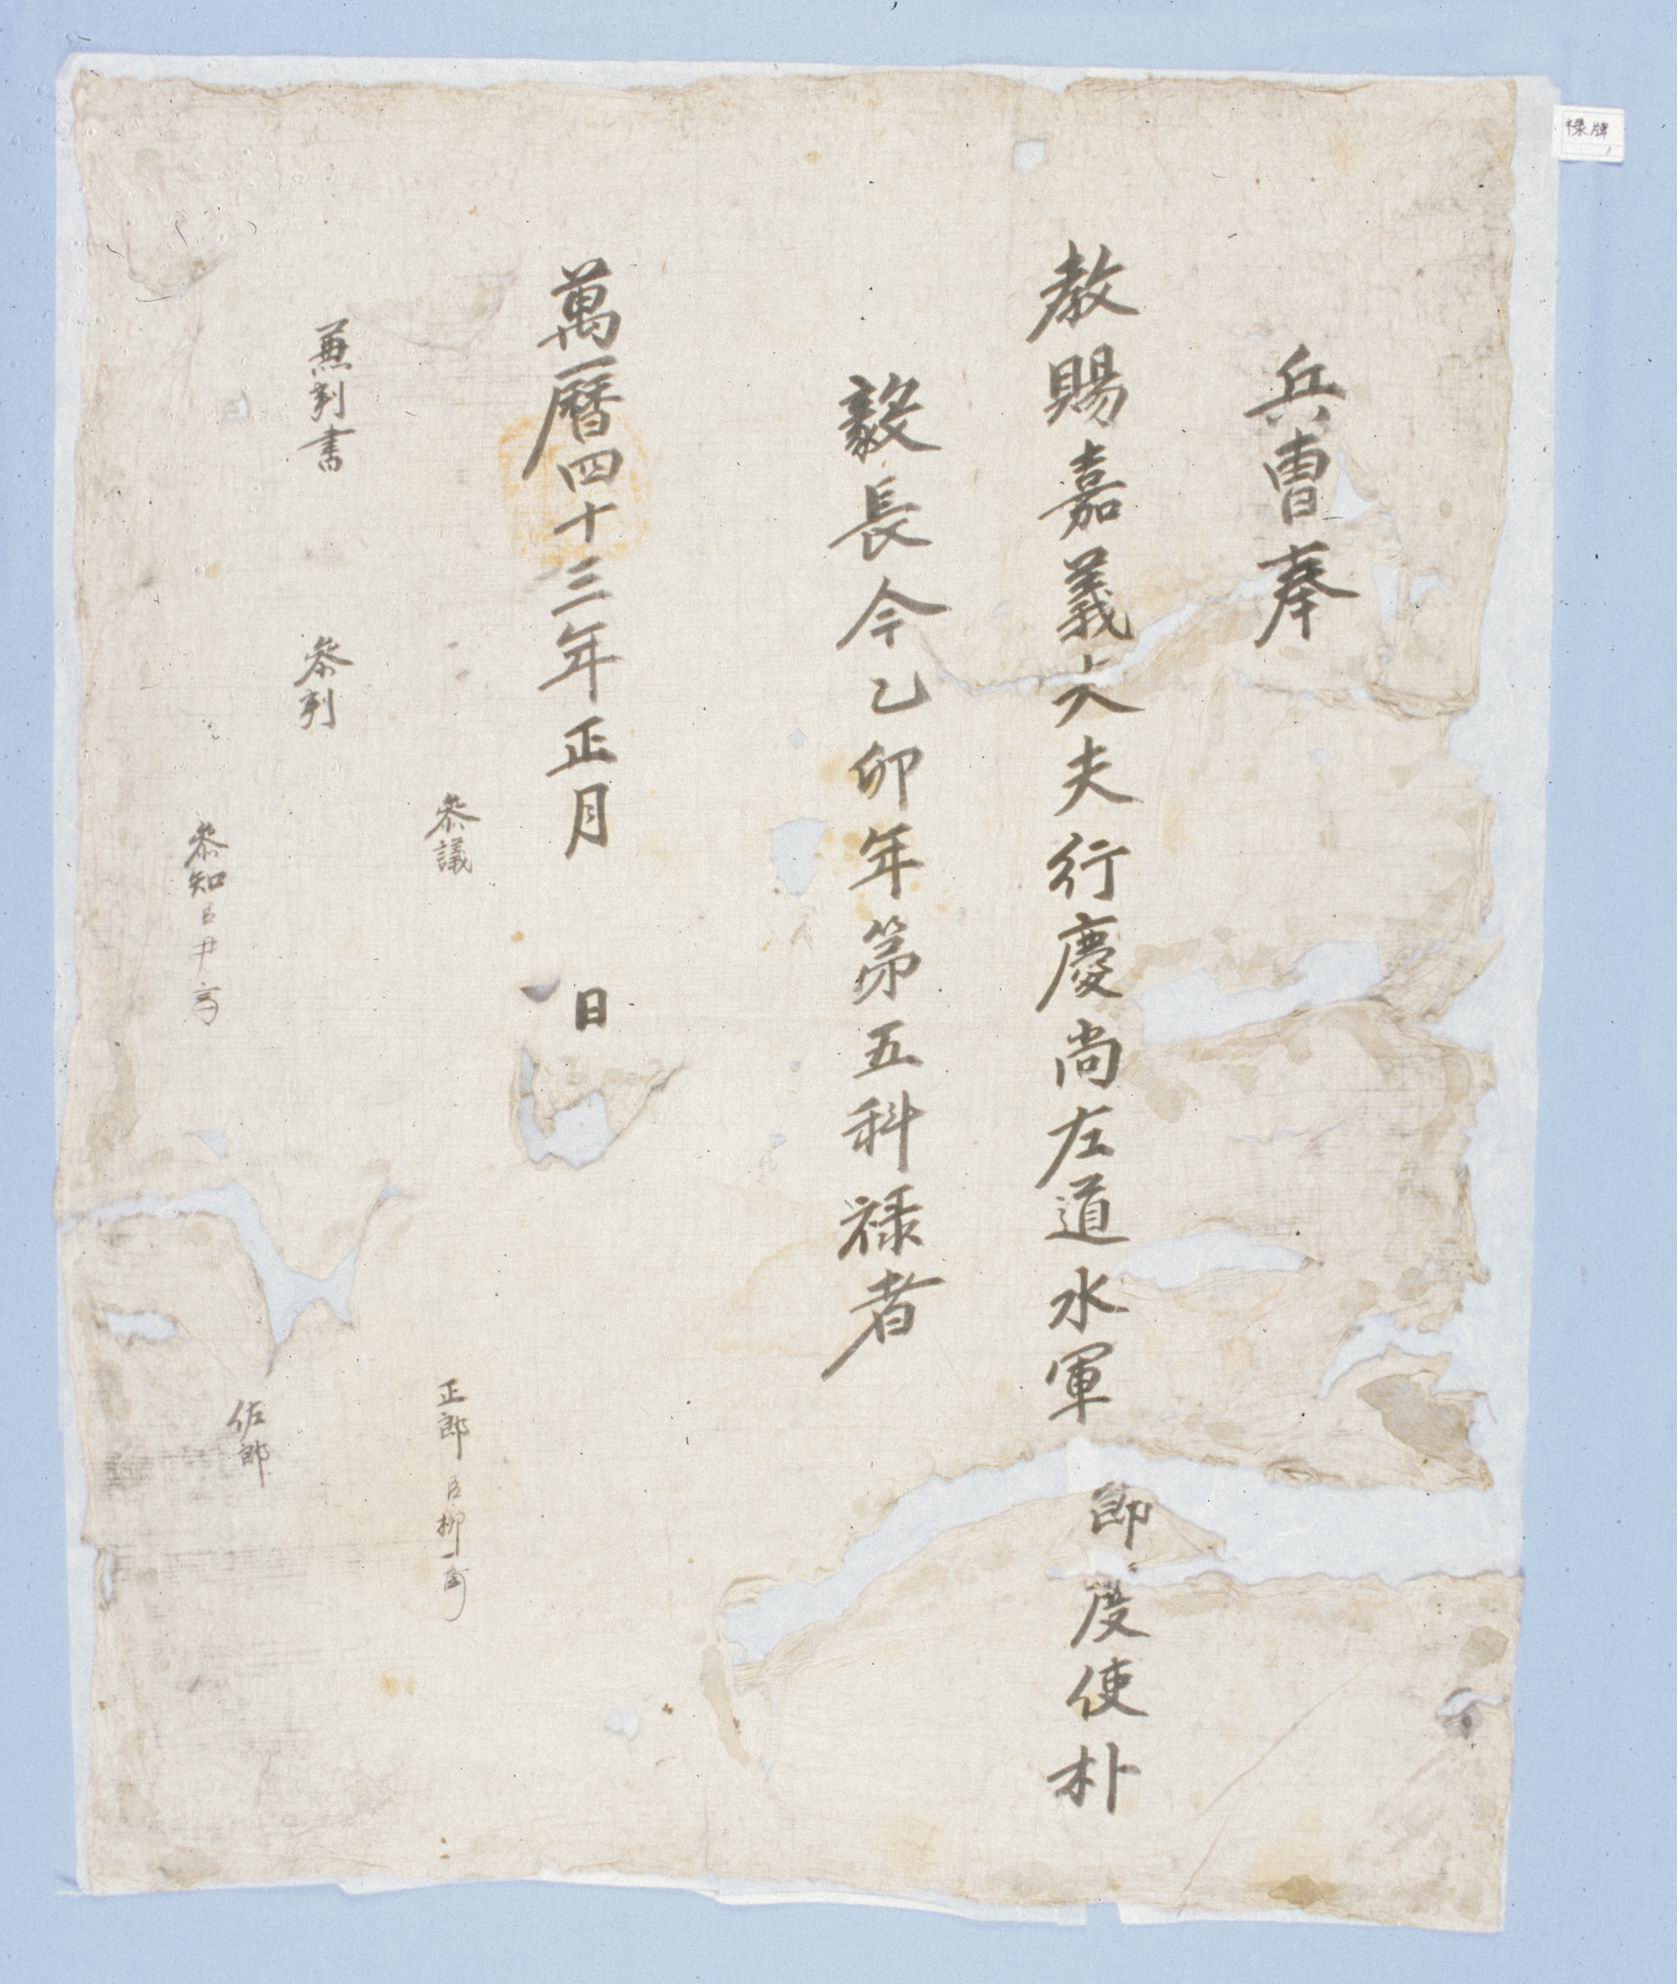 祿牌
兵曹奉
敎賜嘉義大夫行慶尙左道水軍節度使朴
毅長今乙卯年第五科祿者
萬曆四十三年正月 日
參議
正郞臣柳
兼判書
參判
佐郞
參知臣尹